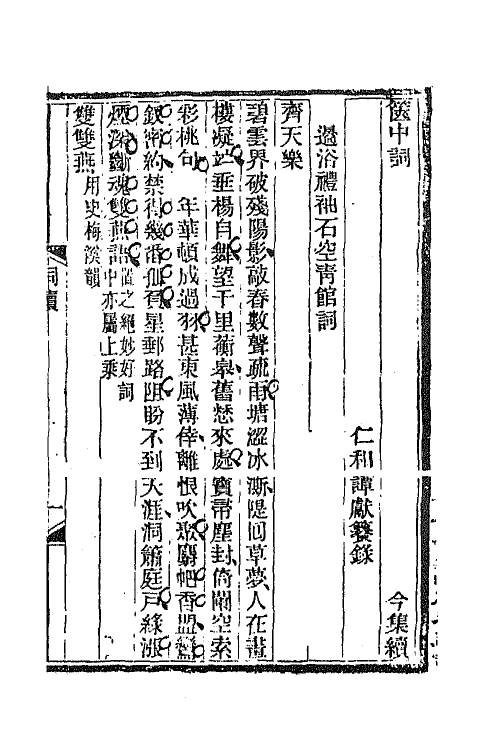 篋中詞 今集續
仁和譚獻纂錄
過浴禮袖石空青館詞
齊天樂
碧雲界破殘陽影敲春數聲疏雨塘澀冰澌隄回草夢人在畫
樓凝竚垂楊自舞望千里蘅皋舊愁來處寶帶塵封倚闌空索
彩桃句 年華頓成過羽甚東風薄倖離恨吹聚羅帕香盟
釵密約禁得幾番孤負星郵路阻盼不到天涯洞簫庭戶綠漲
煙深斷魂雙燕語 置之絕妙好詞
中亦屬上乘
雙雙燕 用史梅溪韻
詞續
一